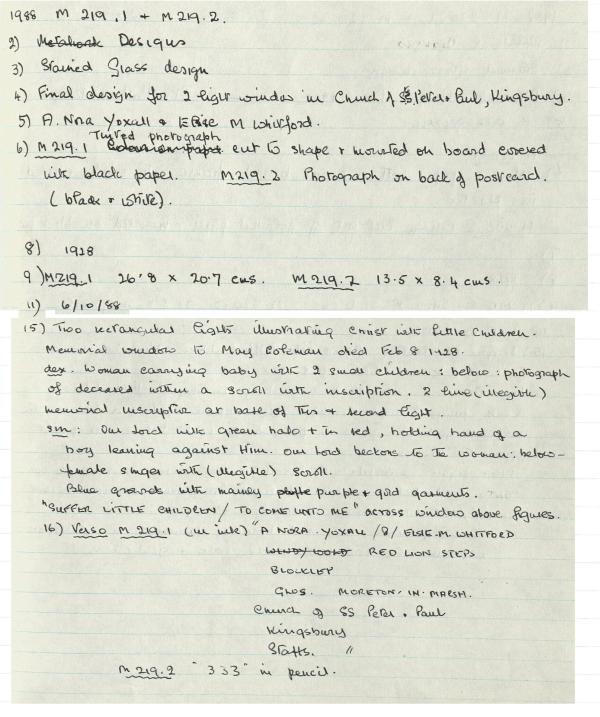 1988 M 219.1 + M 219.2.
2) Designs
3) Stained Glass design
4) Final design for 2 light window in Church of SS Peter + Paul, Kingsbury.
5) A. Nora Yoxall & Elsie M Whitford.
Tinted photograph
6) M219.1 cut to shape + mounted on board covered
with black paper. M219.2 Photograph on back of postcard.
(black + white).
8) 1928
9) M219.1 26.8 x 20.7 cms. M219.2 13.5 x 8.4 cms.
11) 6/10/88
15) Two rectangular lights illustrating Christ with little children.
Memorial window to May Coleman died Feb 8 1928.
dex. Woman carrying baby with 2 small children : below : photograph
of deceased within a scroll with inscription. 2 line (illegible)
memorial inscription at base of this + second light.
sin: Our Lord with green halo + in red, holding hand of a
boy leaning against Him. Our Lord beckons to the woman: below-
female singer with (illegible) scroll.
Blue grounds with mainly purple + gold garments.
"SUFFER LITTLE CHILDREN / TO COME UNTO ME" across window above figures.
16) Verso M219.1 (in ink) "A NORA. YOXALL /&/ ELSIE.M. WHITFORD
RED LION STEPS
BLOCKLEY
GLOS. MORETON-IN-MARSH.
Church of SS Peter + Paul
Kingsbury
Staffs. "
M219.2 "333" in pencil.